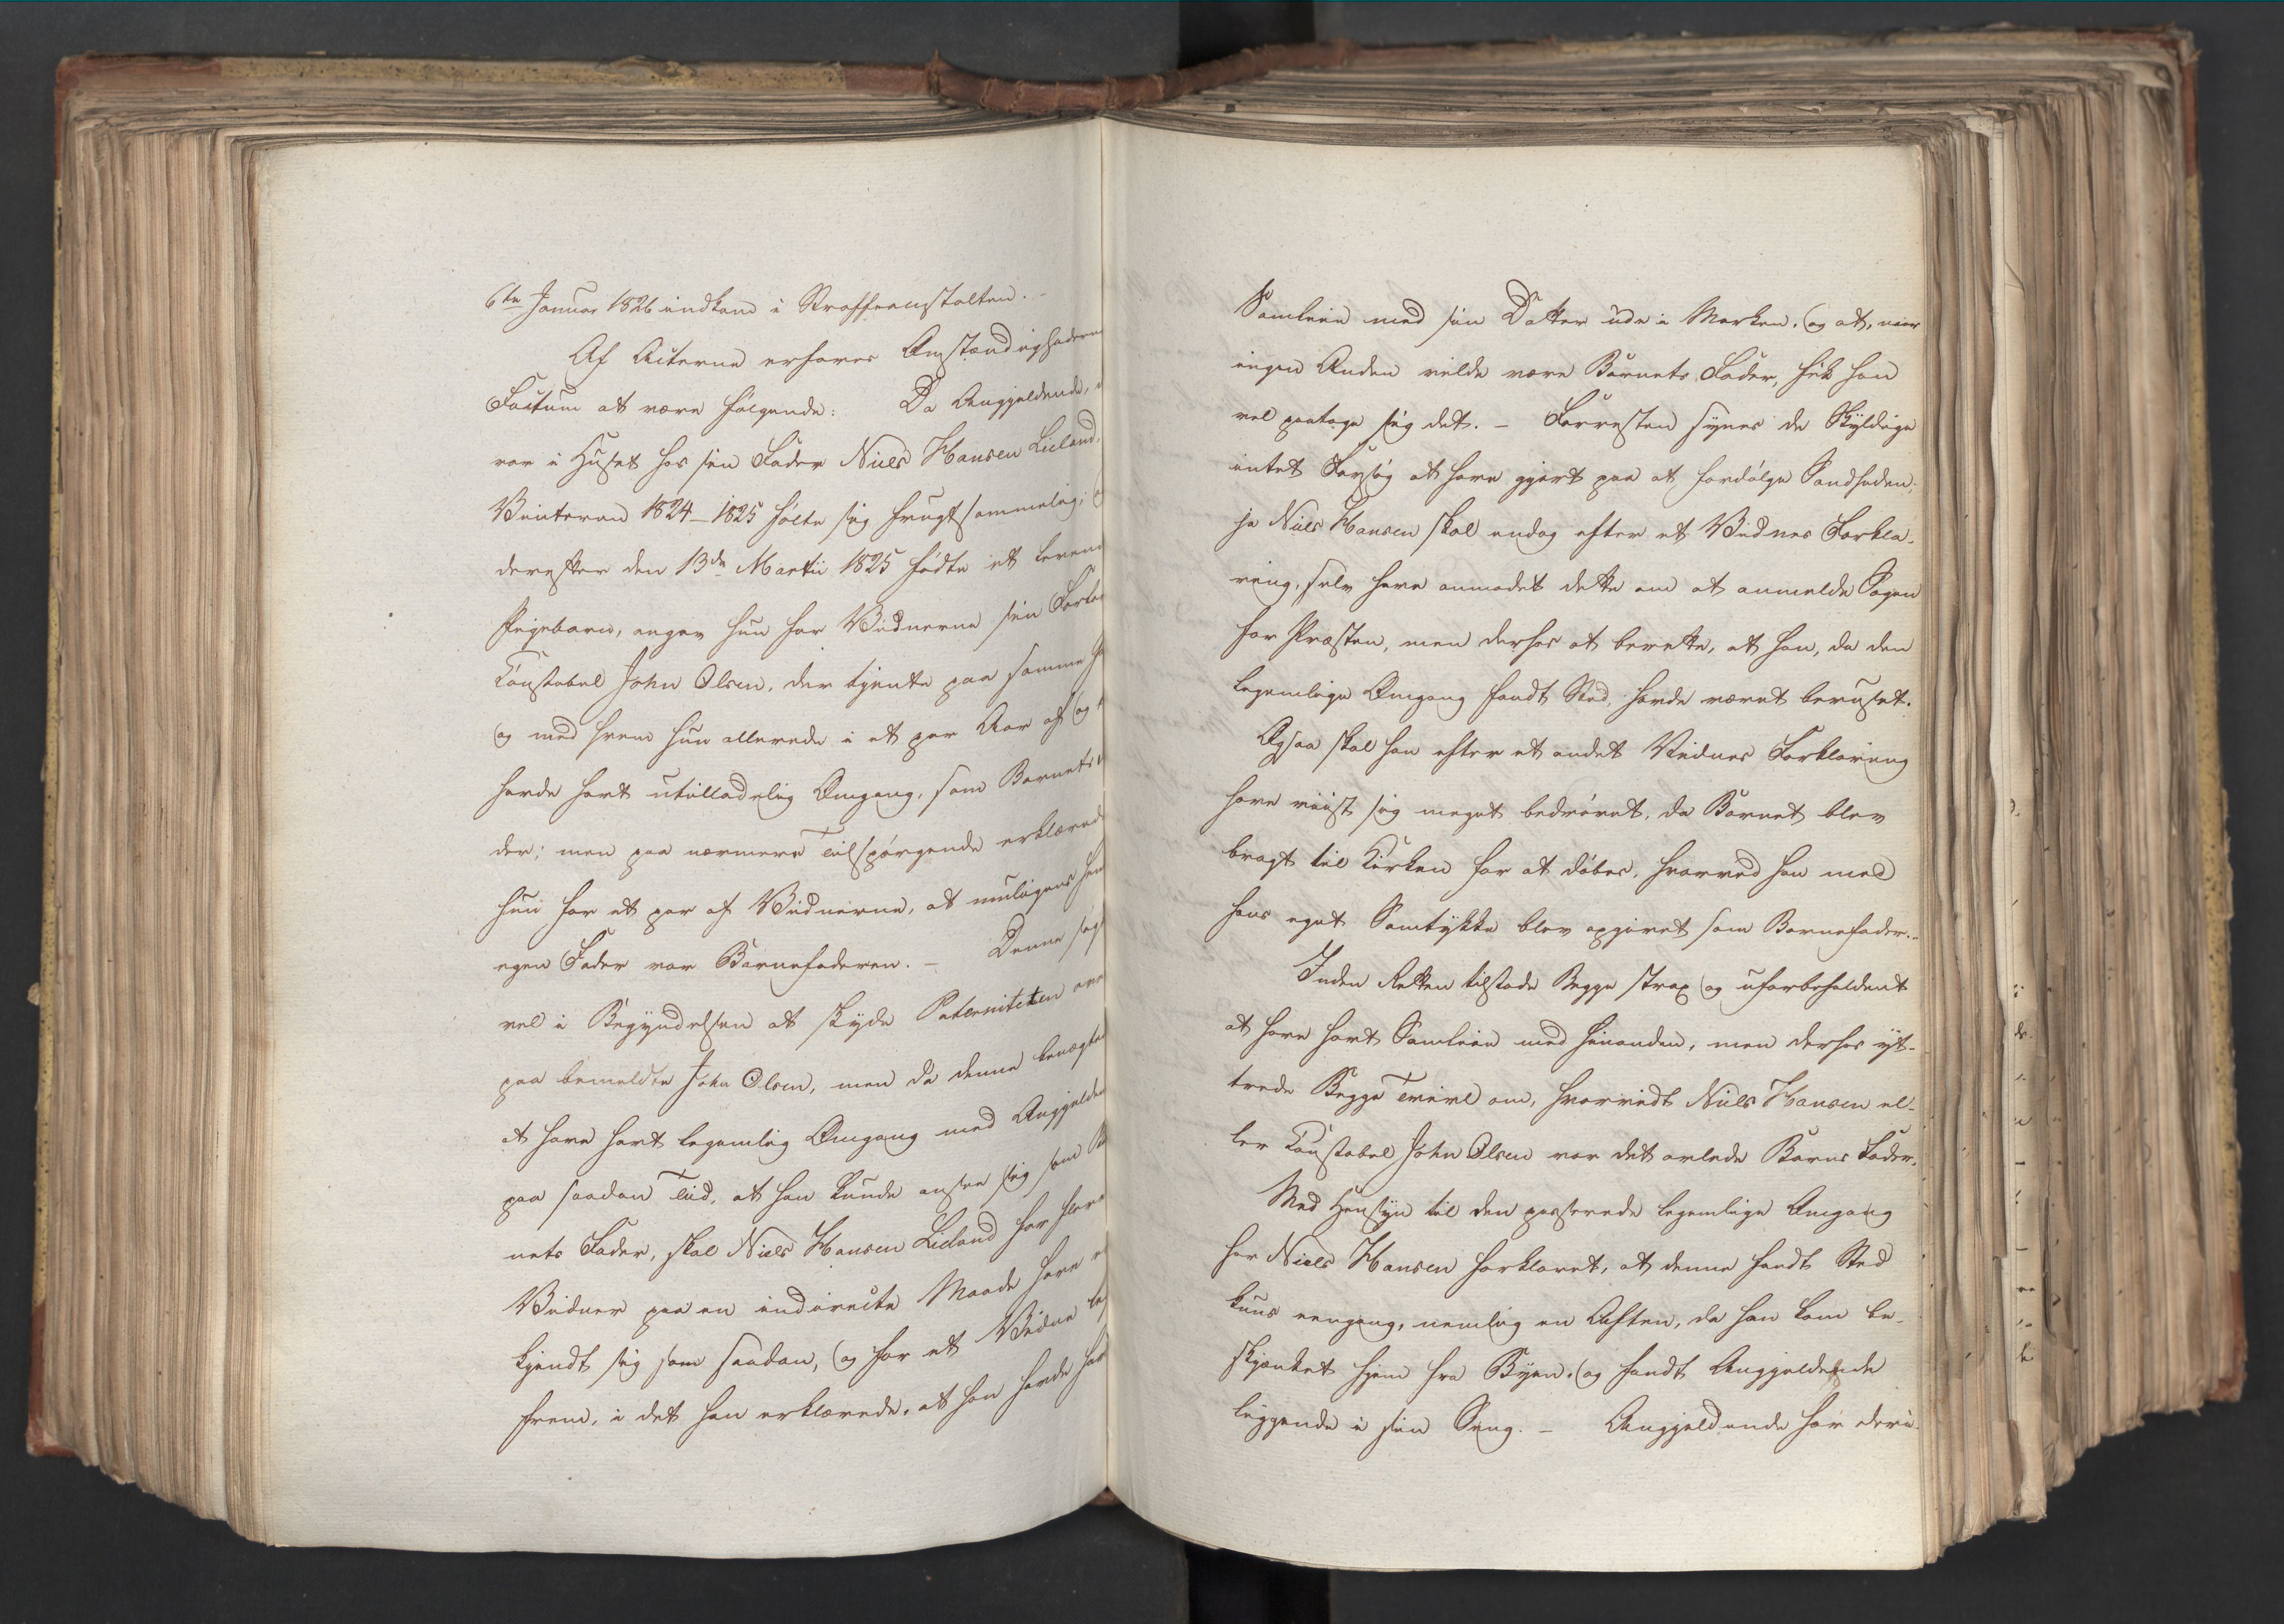 6te Januar 1826 indkom i Straffeanstalten. -
Af Acterne erfares Omstændighederne
Factum at være følgende: Da Angjeldende,
var i Huset hos sin Fader Niels Hansen Lieland,
Vinteren 1824-1825 følte sig frugtsommelig,
derefter den 13de Martii 1825 fødte et levend
Pigebarn, angav hun for Vidnerne sin
Constabel John Olsen, der tjente paa samme
og med hvem hun allerede i et par Aar af og
havde havt utilladelig Omgang, som Barnets
der; men paa nærmere Tilspørgende erklæred
hun for et par af Vidnerne, at muligens hen
egen Fader var Barnefaderen. - Denne søg
vel i Begyndelsen at skyde Paterniteten ove
paa bemeldte John Olsen, men da denne benægte
at have havt legemlig Omgang med Angjelden
paa saadan Tiid, at han kunde ansee sig som
nets Fader, skal Niels Hansen Lieland for flere
Vidner paa en indirecte Maade have
kjendt sig som saadan, og for et Vidne
frem, i det han erklærede, at han havde hav
Samleie med sin Datter ude i Marken, og at, naar
ingen Anden vilde være Barnets Fader, fik han
vel paatage sig det. - Forresten synes de Skyldige
intet Forsøg at have gjort paa at fordølge Sandheden;
ja Niels Hansen skal endog efter et Vidnes Forkla-
ring, selv have anmodet dette om at anmelde Sagen
for Præsten, men derhos at berette, at han, da den
legemlige Omgang fandt Sted, havde været beruset.
Ogsaa skal han efter et andet Vidnes Forklaring
have viist sig meget bedrøvet, da Barnet blev
bragt til Kirken for at døbes, hvorved han med
hans eget Samtykke blev opgivet som Barnefader. -
Inden Retten tilstode Begge strax og uforbeholdent
at have havt Samleie med hinanden, men derhos yt-
trede Begge Tvivl om, hvorvidt Niels Hansen el-
ler Constabel John Olsen var det avlede Barns Fader.
Med Hensyn til den passerede legemlige Omgang
har Niels Hansen forklaret, at denne fandt Sted
kuns eengang, nemlig en Aften, da han kom be-
skjænket hjem fra Byen, og fandt Angjeldende
liggende i sin Seng. - Angjeldende har deri-